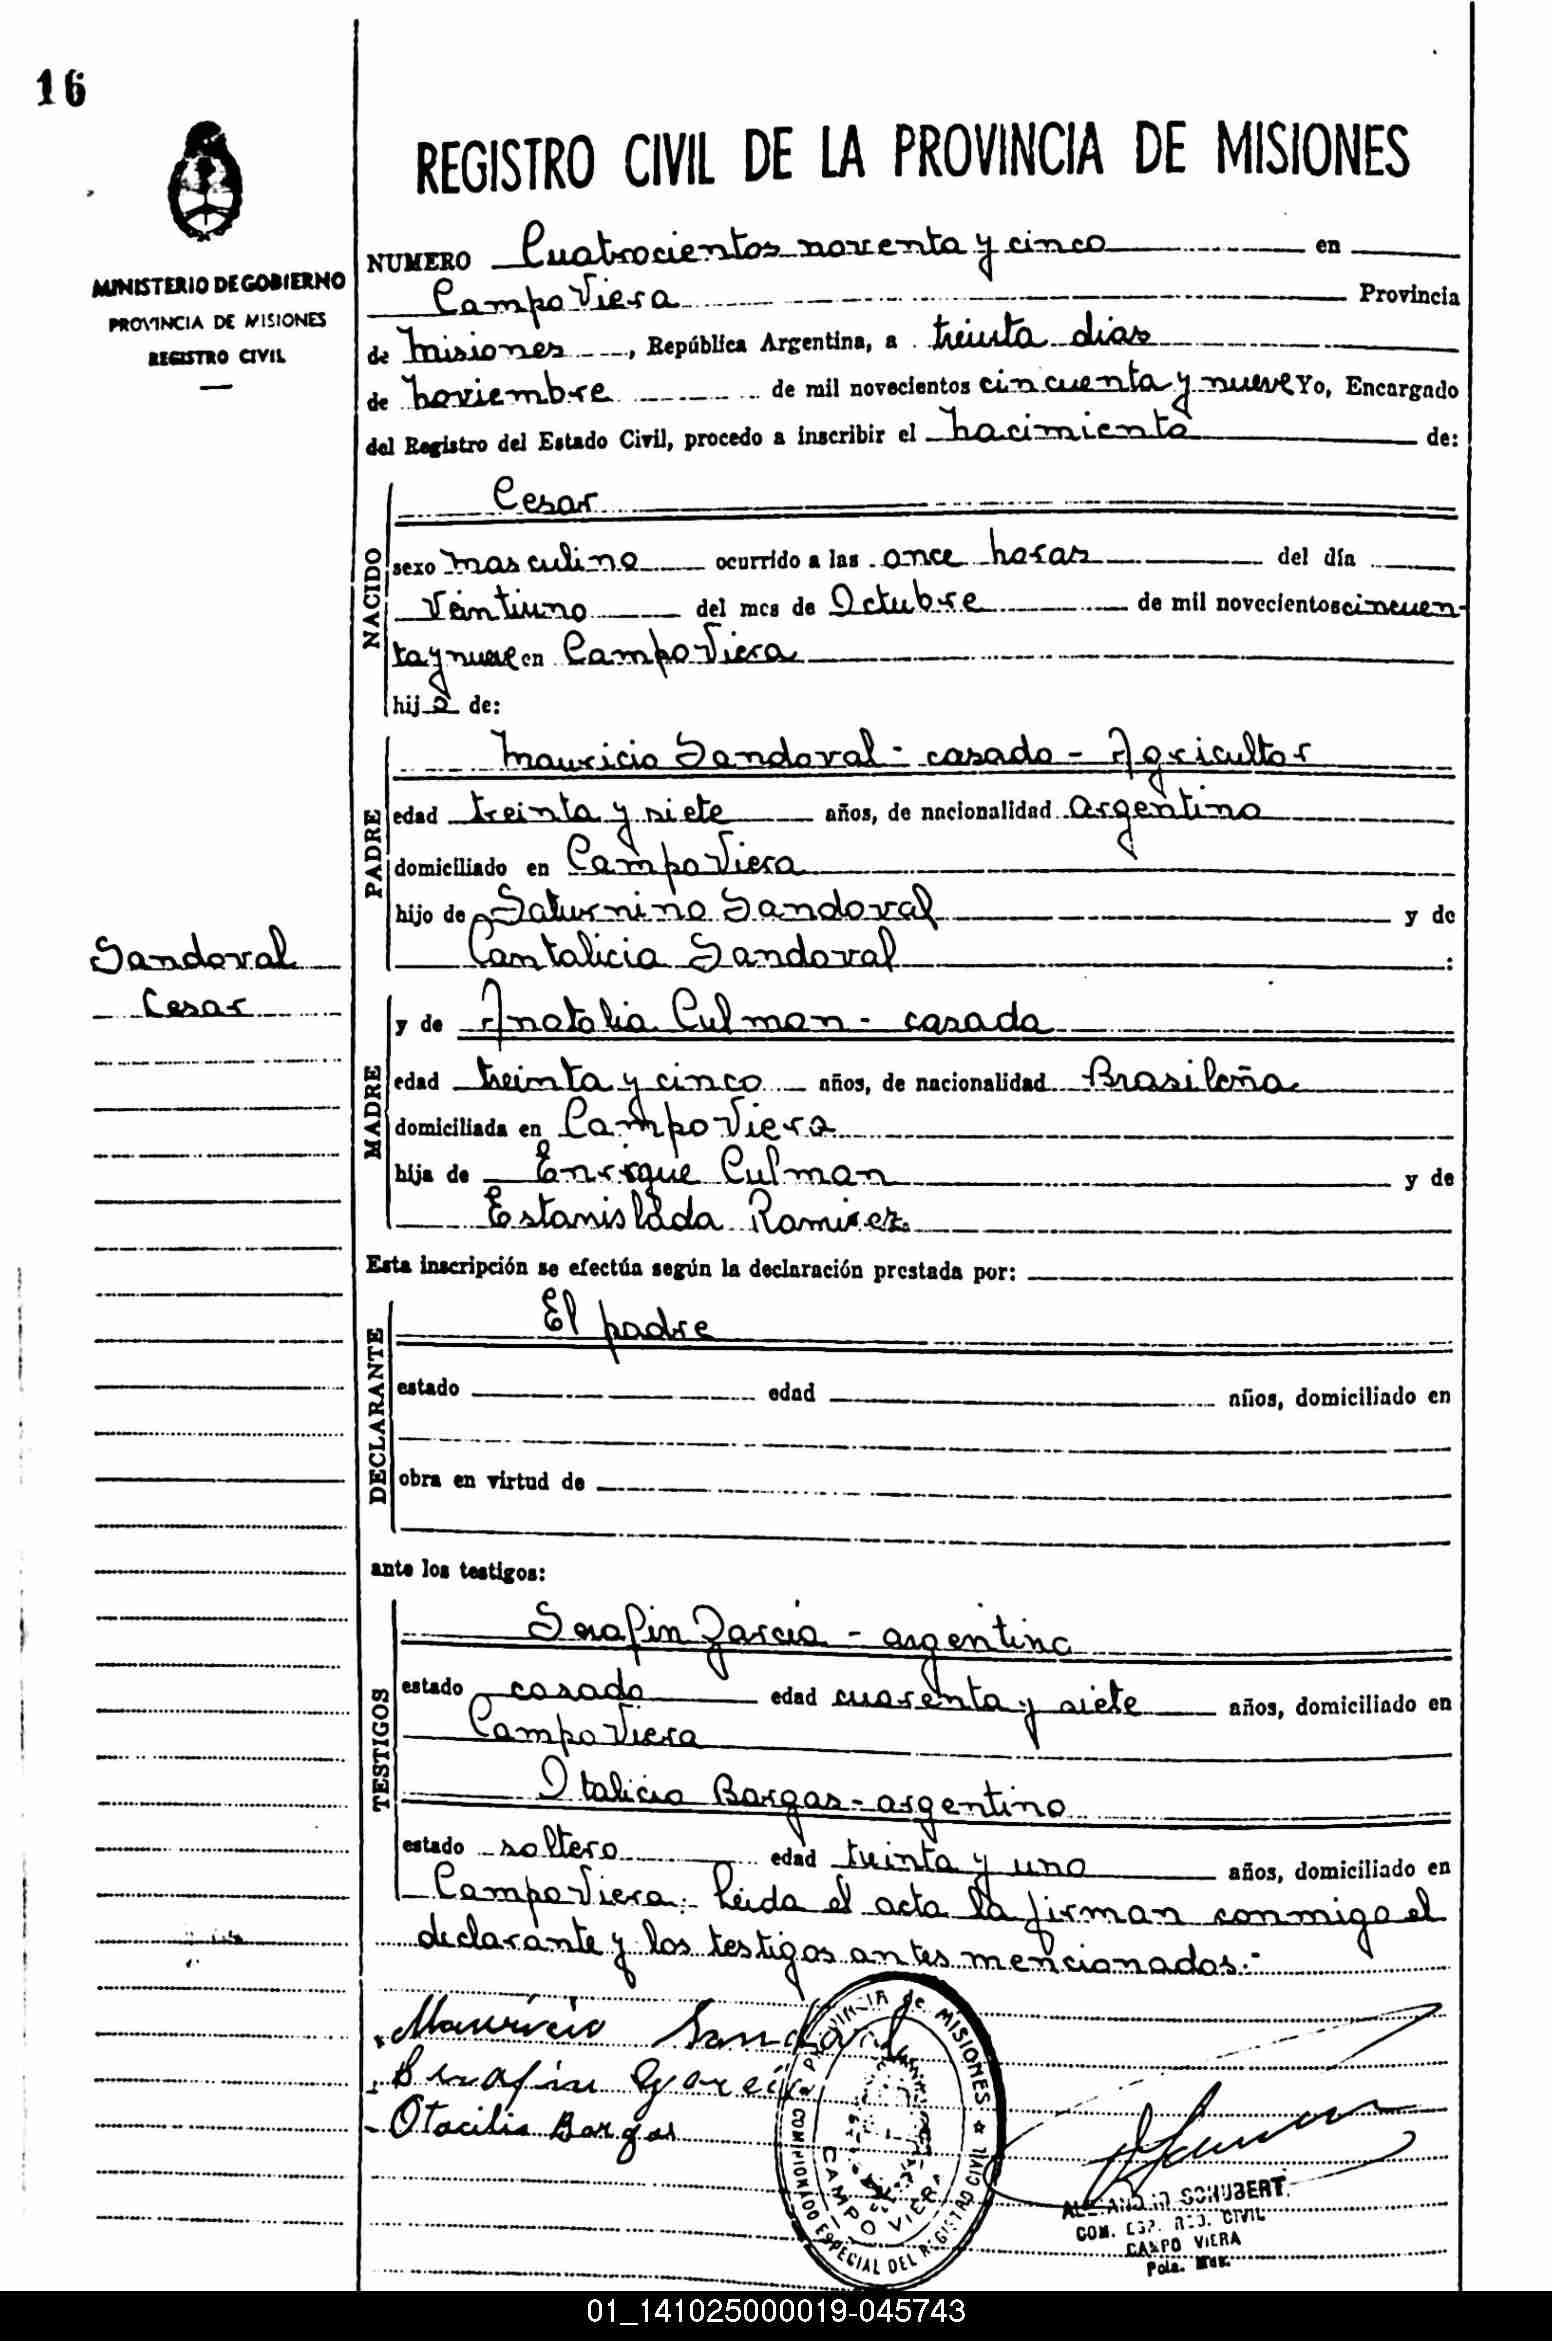 16
MINISTERIO DE GOBIERNO
PROVINCIA DE MISIONES
REGISTRO CIVIL
REGISTRO CIVIL DE LA PROVINCIA DE MISIONES
NUMERO Cuatrocientos noventa y cinco en
Campo Viera Provincia
de Misiones, República Argentina, a treinta dias
de Noviembre de mil novecientos cincuenta y nueve Yo, Encargado
del Registro del Estado Civil, procedo a inscribir el Nacimiento de:
NACIDO
Cesar
sexo Masculino ocurrido a las once horas del día
Veintiuno del mes de Octubre de mil novecientos cincuen-
ta y nueve en Campo Viera
hijo de:
PADRE
Mauricio Sandoval - casado - Agricultor
edad treinta y siete años, de nacionalidad Argentino
domiciliado en Campo Viera
hijo de Saturnino Sandoval y de
Cantalicia Sandoval :
Sandoval
Cesar
MADRE
y de Anatolia Culman - casada
edad treinta y cinco años, de nacionalidad Brasileña
domiciliada en Campo Viera
hija de Enrique Culman y de
Estanislada Ramirez
Esta inscripción se efectúa según la declaración prestada por:
DECLARANTE
El padre
estado edad años, domiciliado en
obra en virtud de
ante los testigos:
TESTIGOS
Serafin Garcia - argentino
estado casado edad cuarenta y siete años, domiciliado en
Campo Viera
Italicio Bargas - argentino
estado soltero edad treinta y uno años, domiciliado en
Campo Viera. Leida el acta la firman conmigo el
declarante y los testigos antes mencionados.-
Mauricio Sandoval
Serafin Garcia
Otacilio Bargas
PROVINCIA de MISIONES
COMISIONADO ESPECIAL DEL REGISTRO CIVIL
CAMPO VIERA
ALEJANDRO SCHUBERT
COM. ESP. REG. CIVIL
CAMPO VIERA
Pcia. Mnes.
01_141025000019-045743